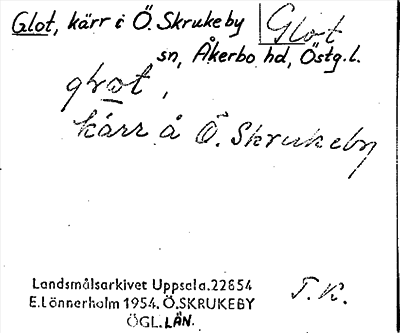 Glot, kärr i Ö. Skrukeby Glot
sn, Åkerbo hd, Östg.l.
glωt,
kärr å Ö. Skrukeby
Landsmålsarkivet Uppsala.22654
E.Lönnerholm 1954. Ö.SKRUKEBY
ÖGL. LÄN.
T.R.